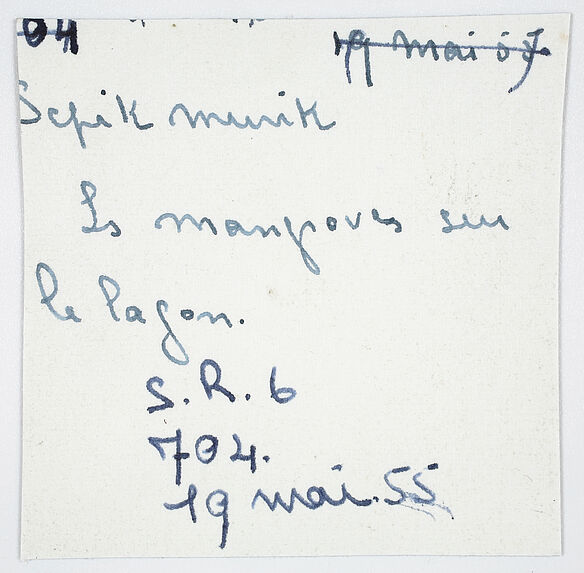 04
19 mai 57
Sepik murik
Ls mangroves sur
le lagon.
S.R. 6
704.
19 mai. 55